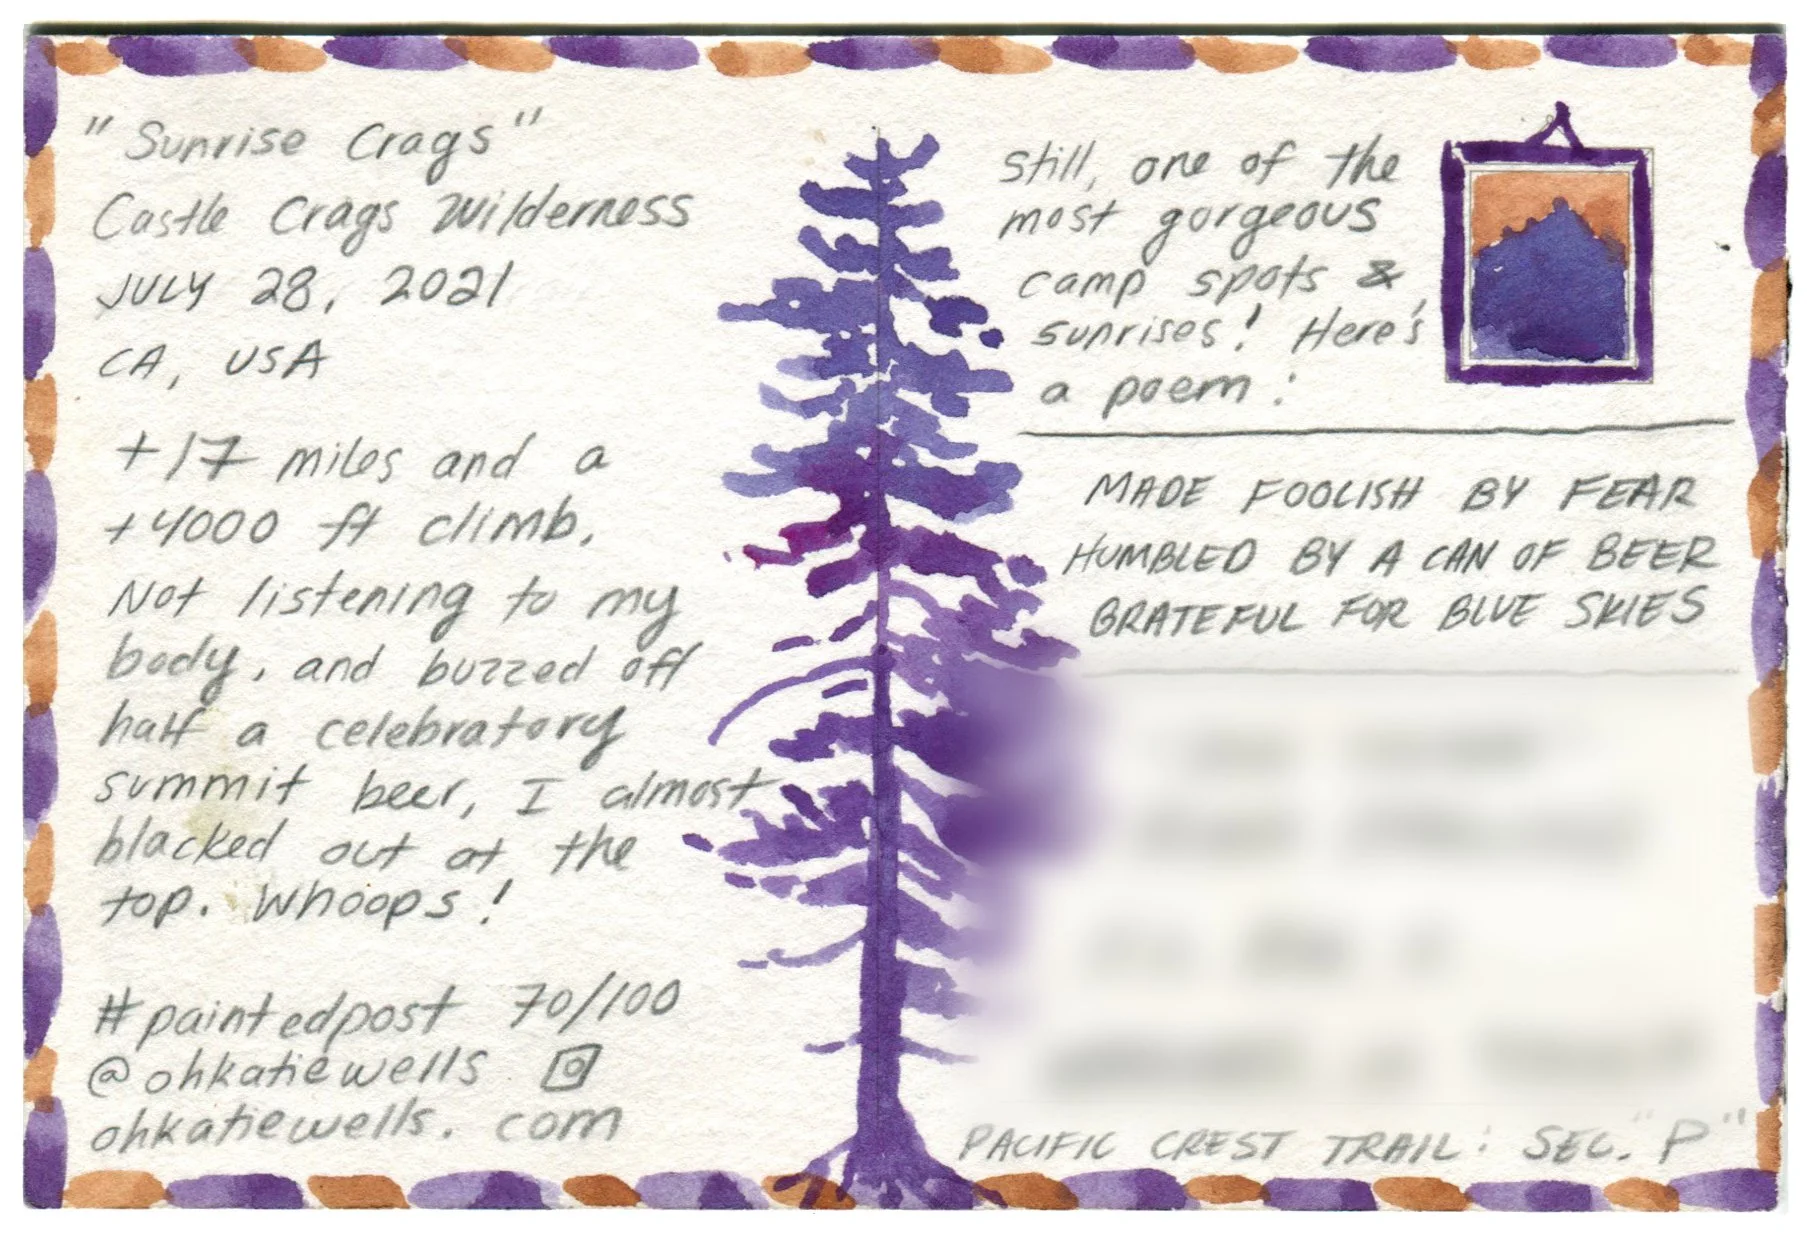 "Sunrise Crags"
Castle Crags Wilderness
JULY 28, 2021
CA, USA
+17 miles and a
+4000 ft climb.
Not listening to my
body, and buzzed off
half a celebratory
summit beer, I almost
blacked out at the
top. Whoops!
#paintedpost 70/100
@ohkatiewells
ohkatiewells.com
Still, one of the
most gorgeous
camp spots &
sunrises! Here's
a poem:
MADE FOOLISH BY FEAR
HUMBLED BY A CAN OF BEER
GRATEFUL FOR BLUE SKIES
PACIFIC CREST TRAIL: SEC. "P"